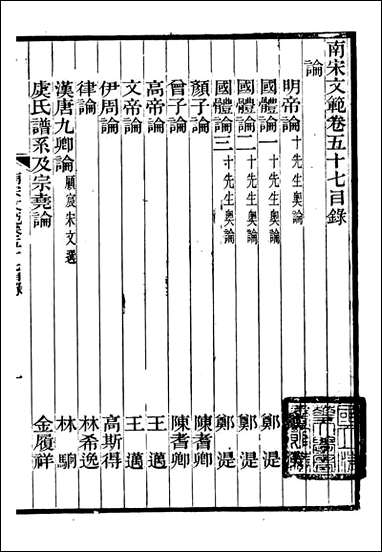 南宋文範卷五十七目錄
論
明帝論 十先生奧論
國體論一 十先生奧論 鄭湜
國體論二 十先生奧論 鄭湜
國體論三 十先生奧論 鄭湜
顏子論 陳耆卿
曾子論 陳耆卿
高帝論 王邁
文帝論 王邁
伊周論 高斯得
律論 林希逸
漢唐九卿論 顧宸宋文選 林駉
虞氏譜系及宗堯論 金履祥